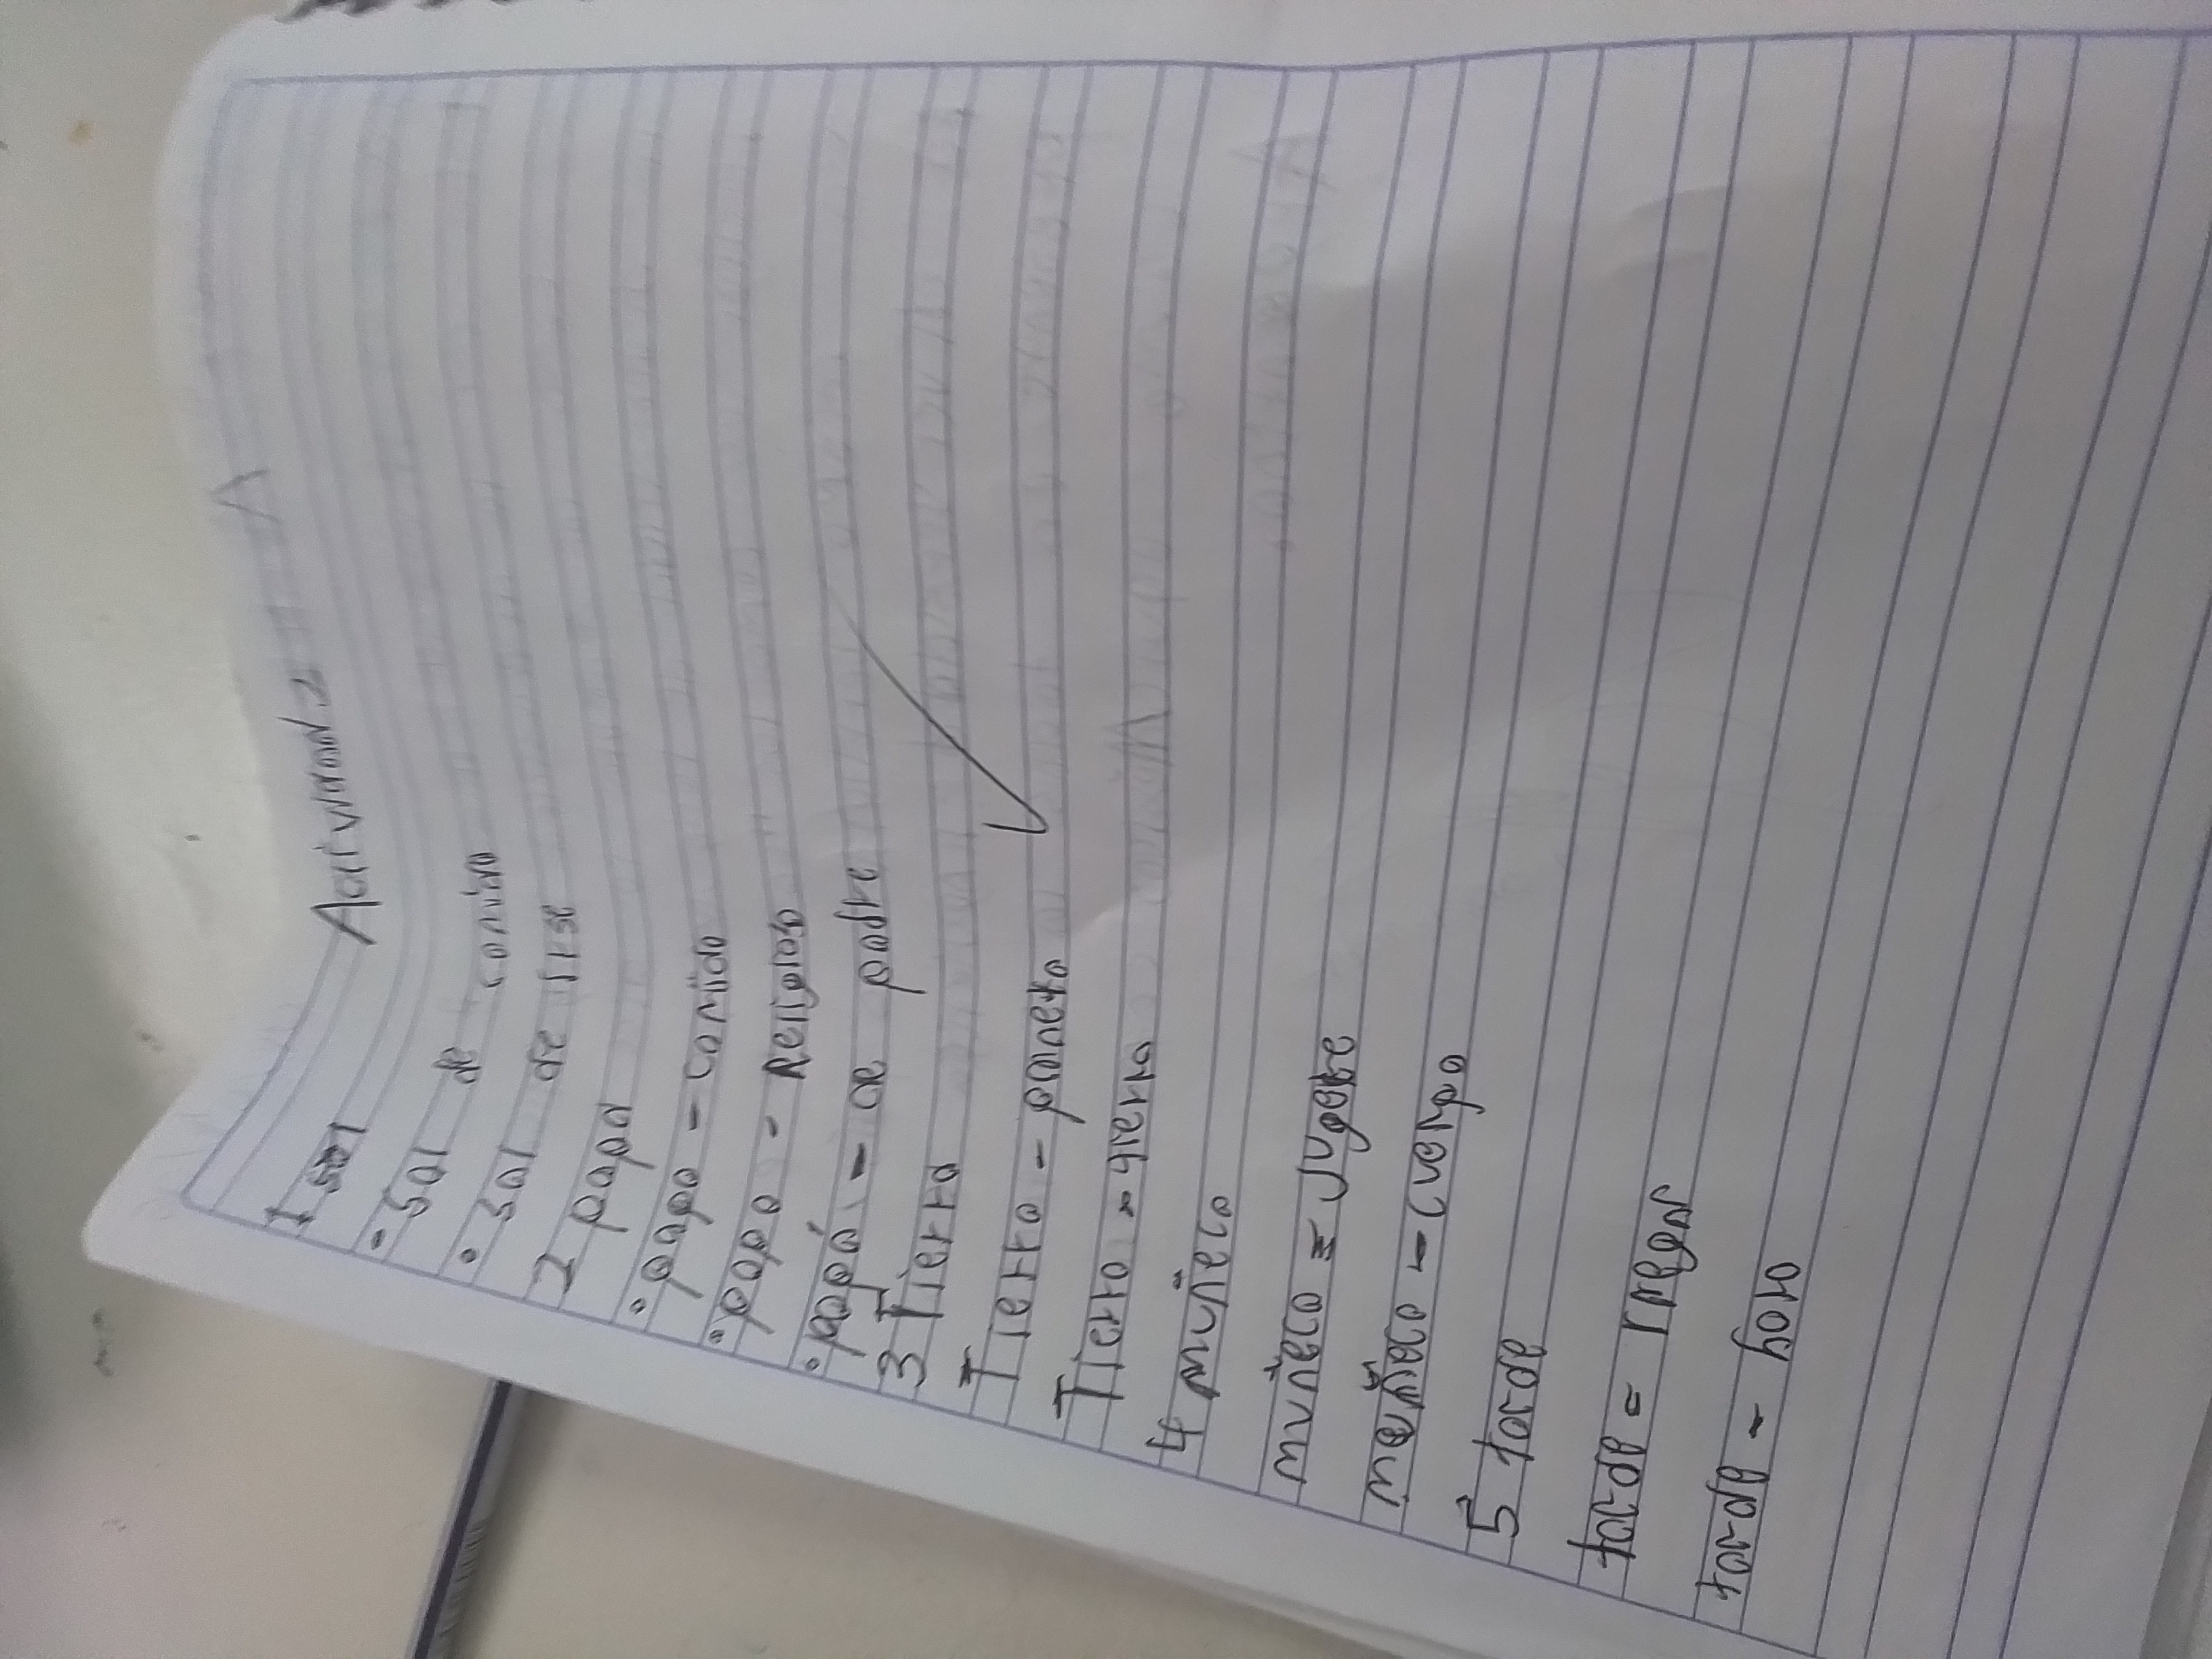 Actividad 2
1 sal
• sal de comida
• sal de irse
2 papa
• papa - comida
• papa - Religioso
• papá - de padre
3 Tierra
Tierra - planeta
Tierra - tierra
4 muñeca
muñeca = Juguete
muñeca - cuerpo
5 tarde
tarde =
tarde - hora